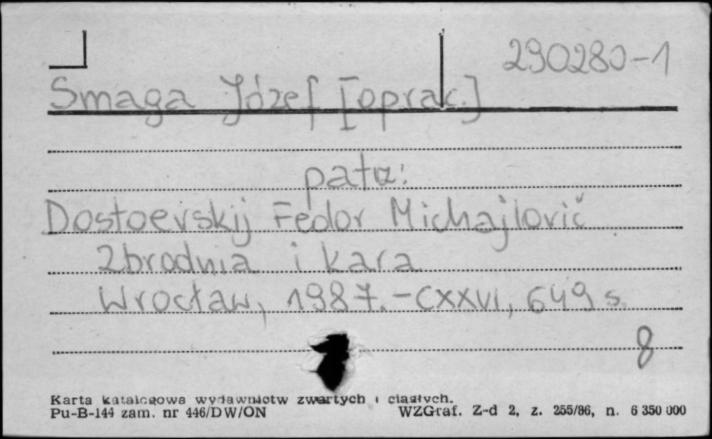 290280-1
Smaga Józef [oprac.]
patrz:
Dostoevskij Fedor Michajlovič
Zbrodnia i kara
Wrocław, 1987. - CXXVI, 649 s.
8
Karta katalogowa wydawnictw zwartych i ciągłych.
Pu-B-144 zam. nr 446/DW/ON WZGraf. Z-d 2, z. 255/86, n. 6 350 000